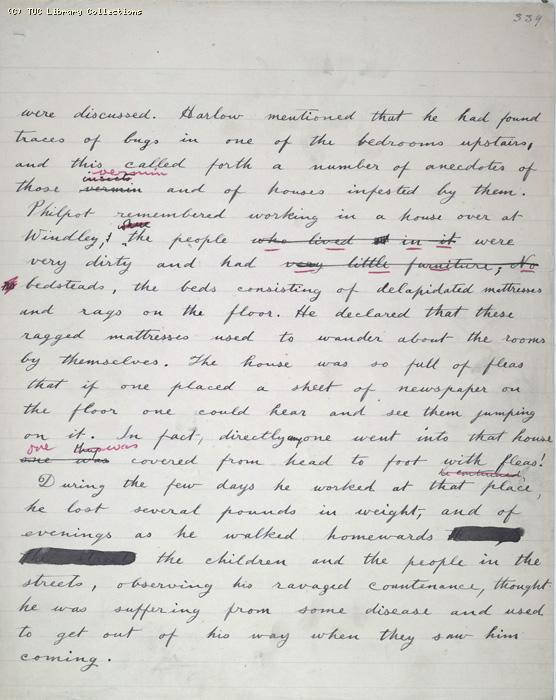 (C) TUC Library Collections
339
were discussed. Harlow mentioned that he had found
traces of bugs in one of the bedrooms upstairs,
and this called forth a number of anecdotes of
vermin
insects
those vermin and of houses infested by them.
Philpot remembered working in a house over at
Windley; the people who lived in it were
very dirty and had very little furniture; No
no bedsteads, the beds consisting of delapidated mattresses
and rags on the floor. He declared that these
ragged mattresses used to wander about the rooms
by themselves. The house was so full of fleas
that if one placed a sheet of newspaper on
the floor one could hear and see them jumping
on it. In fact, directly anyone went into that house
one was
one was covered from head to foot with fleas!
he continued,
During the few days he worked at that place,
he lost several pounds in weight, and of
evenings as he walked homewards
the children and the people in the
streets, observing his ravaged countenance, thought
he was suffering from some disease and used
to get out of his way when they saw him
coming.